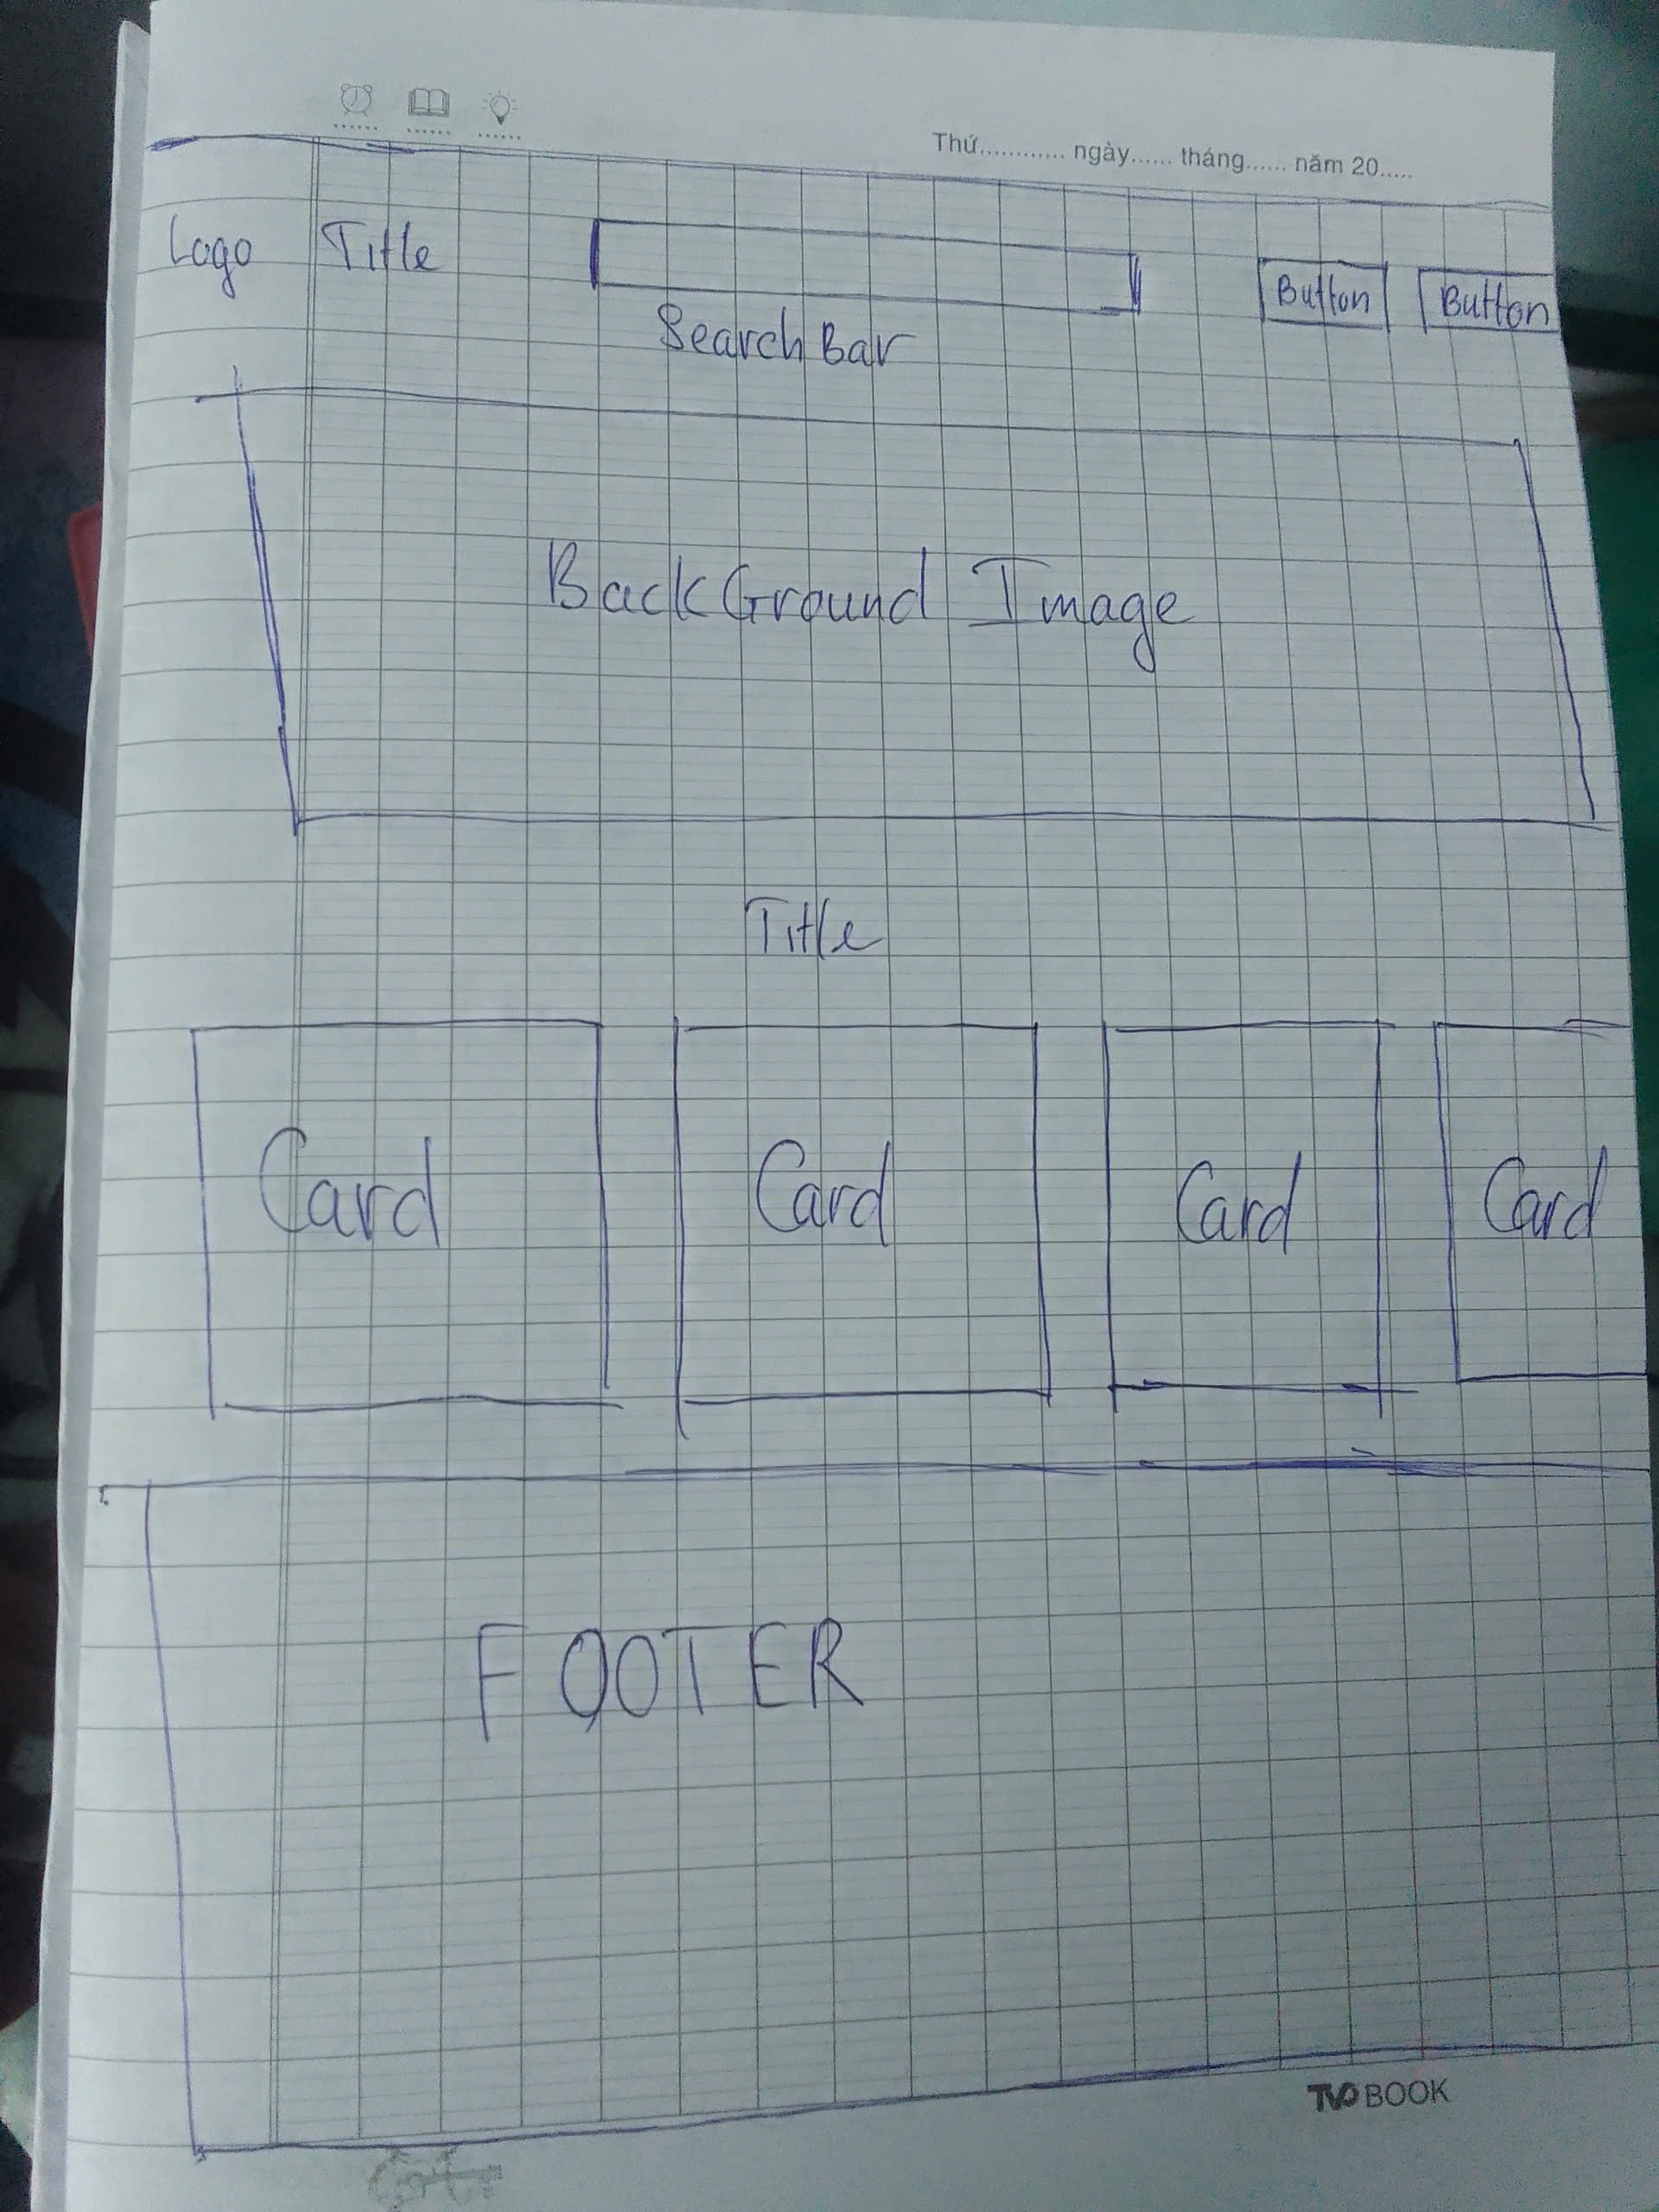 Thứ............ ngày...... tháng...... năm 20.....
Logo Title Button Button
Search Bar
BackGround Image
Title
Card Card Card Card
FOOTER
TVO BOOK